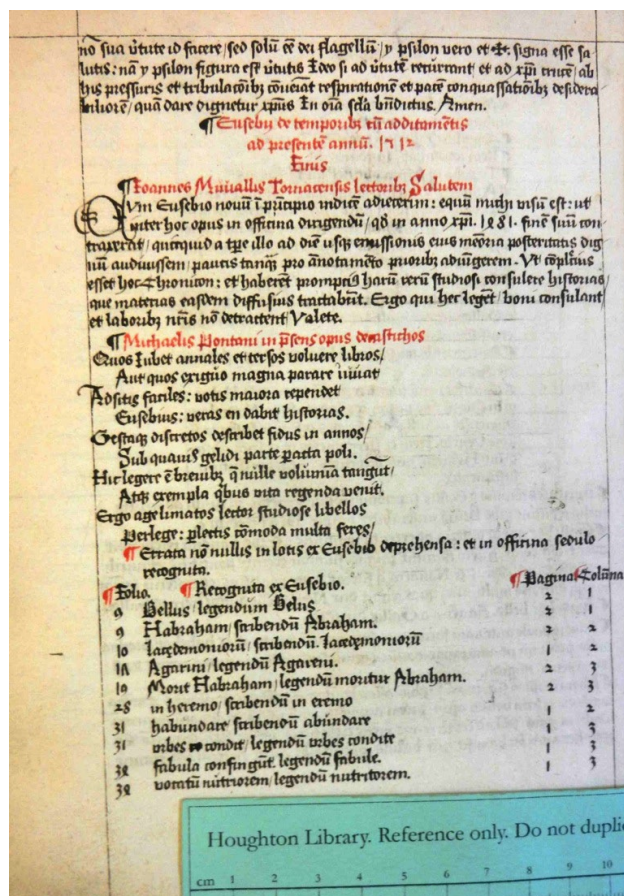 nō sua v̄tute id facere/ sed solū eē dei flagellū/ y psilon vero et ✠. signa esse sa
lutis: nā y psilon figura est v̄tutis Ideo si ad v̄tutē recurrant et ad xp̄i crucē/ ab
his pressuris et tribulacōibꝫ cōveniāt respirationē et pacē conquassationibꝫ desidera
biliorē/ quā dare dignetur xp̄us In oīa sc̄la bn̄dictus. Amen.
¶ Eusebij de temporibꝫ cū additamētis
ad presentē annū. 1512
Finis
¶ Ioannes Muuallis Tornacensis lectoribꝫ Salutem
QVm Eusebio nouū ī p̄ncipio indicē adiecerim: equū michi visū est: ut
hoc opus in officina dirigendū/ qd̄ in anno xp̄i. 1481. finē suū con
traxerat/ quicquid a tp̄e illo ad diē usqꝫ emissionis eius meōria posteritatis dig
nū audiuissem/ paucis tanqꝫ pro ānotamēto prioribꝫ adiūgerem. Vt cōpletius
esset hoc Chronicon: et haberēt promptiꝰ harū rerū studiosi consulere historias/
que materias easdem diffusius tractabūt. Ergo qui hec legēt/ boni consulant
et laboribꝫ nr̄is nō detractent/ Valete.
¶ Michaelis Pontani in p̄sens opus decastichos
Quos Iubet annales et tersos voluere libros/
Aut quos exiguo magna parare iuuat
Adsitis faciles: votis maiora rependet
Eusebius: veras en dabit historias.
Gestaqꝫ discretos describet fidus in annos/
Sub quauis gelidi parte pacta poli.
Hic legere ē breuibꝫ q̄ mille volumīa tangūt/
Atqꝫ exempla qbus vita regenda venit.
Ergo age limatos lector studiose libellos
Perlege: plectis cōmoda multa feres/
¶ Errata nō nullis in locis ex Eusebio deprehensa: et in officina sedulo
recognita.
¶ Folio. ¶ Recognita ex Eusebio. ¶ Pagina ¶ Colūna
9 Bellus/ legendum Belus 2 1
9 Habraham/ scribendū Abraham. 2 1
10 lacędemoniorū/ scribendū. lacedęmoniorū 2 2
14 Agarini/ legendū Agareni. 1 2
14 Morit Habraham/ legendū moritur Abraham. 2 3
28 in heremo/ scribendū in eremo 2 3
31 habūndare scribendū abūndare 1 2
31 vrbes condit/ legendū vrbes condite 1 3
34 fabula confingūt. legendū fabule. 1 3
34 vocatū nutriorem/ legendū nutritorem. 1 3
Houghton Library. Reference only. Do not duplic
cm 1 2 3 4 5 6 7 8 9 10